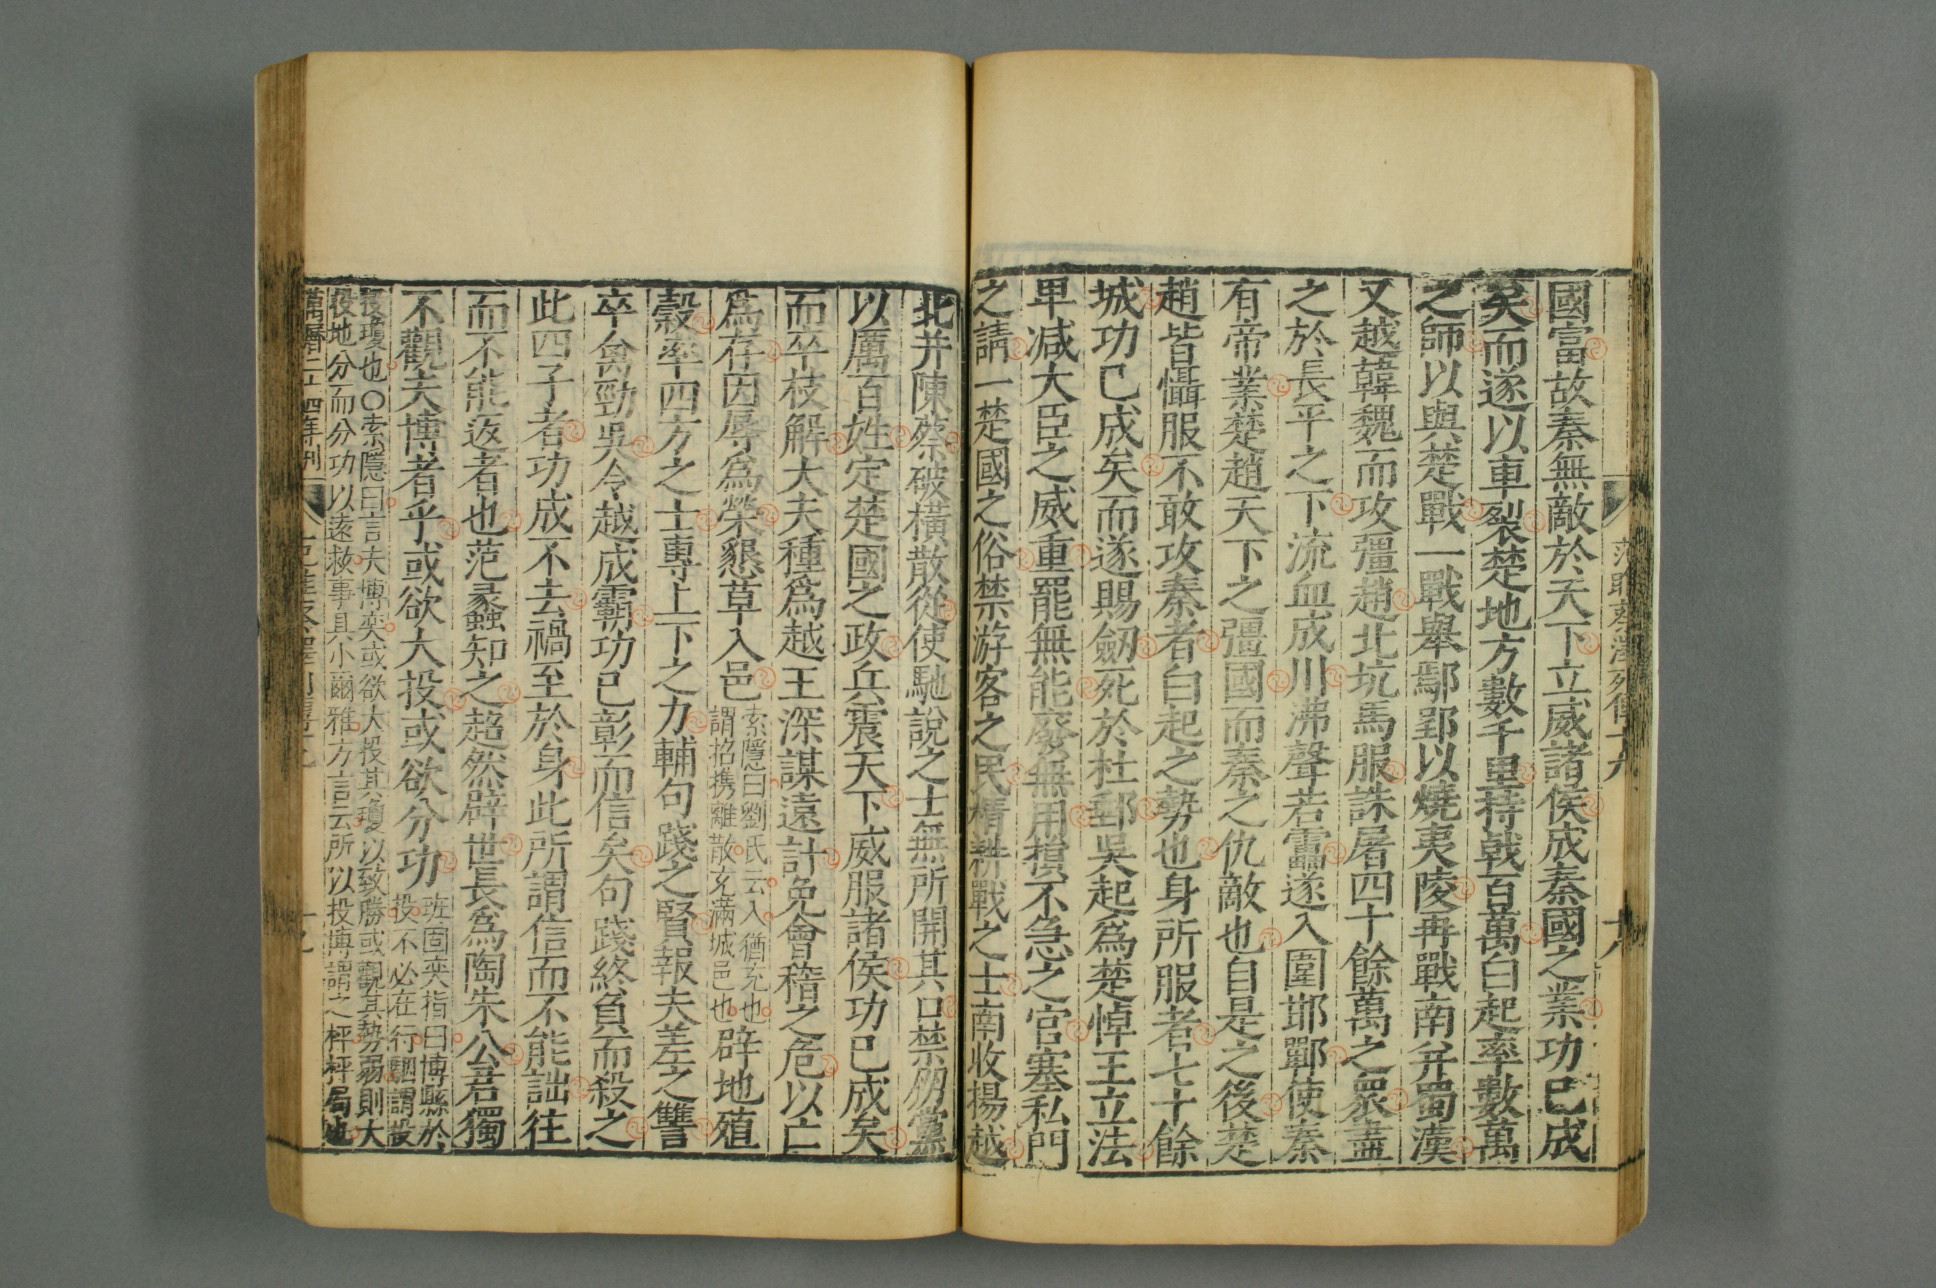 范雎蔡澤列傳十九
十八
國富故秦無敵於天下立威諸侯成秦國之業功已成
矣而遂以車裂楚地方數千里持戟百萬白起率數萬
之師以與楚戰一戰舉鄢郢以燒夷陵再戰南并蜀漢
又越韓魏而攻彊趙北坑馬服誅屠四十餘萬之眾盡
之於長平之下流血成川沸聲若靁遂入圍邯鄲使秦
有帝業楚趙天下之彊國而秦之仇敵也自是之後楚
趙皆懾服不敢攻秦者白起之勢也身所服者七十餘
城功已成矣而遂賜劒死於杜郵吳起爲楚悼王立法
卑減大臣之威重罷無能廢無用損不急之官塞私門
之請一楚國之俗禁游客之民精耕戰之士南收揚越
北并陳蔡破橫散從使馳說之士無所開其口禁朋黨
以厲百姓定楚國之政兵震天下威服諸侯功已成矣
而卒枝解大夫種爲越王深謀遠計免會稽之危以亡
爲存因辱爲榮懇草入邑索隱曰劉氏云入猶充也謂招攜離散充滿城邑也辟地殖
穀率四方之士專上下之力輔句踐之賢報夫差之讐
卒禽勁吳令越成霸功已彰而信矣句踐終負而殺之
此四子者功成不去禍至於身此所謂信而不能詘往
而不能返者也范蠡知之超然辟世長爲陶朱公君獨
不觀夫博者乎或欲大投或欲分功班固奕指曰博縣於投不必在行駰謂投
投瓊也○索隱曰言夫博奕或欲大投其瓊以致勝或觀其勢弱則大
投地分而分功以遠救事具小爾雅方言云所以投博謂之枰枰局也
萬曆二十四年刊
十九